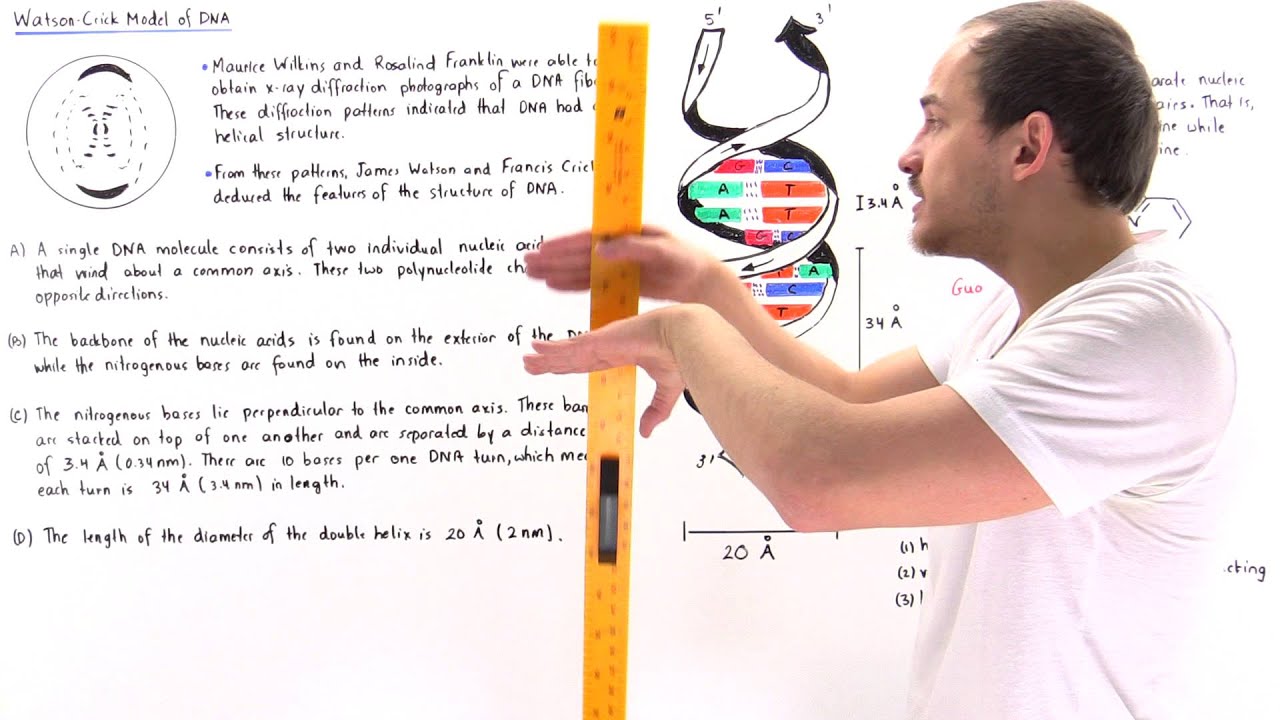 Watson-Crick Model of DNA
• Maurice Wilkins and Rosalind Franklin were able to
obtain x-ray diffraction photographs of a DNA
These diffraction patterns indicated that DNA had
helical structure.
• From these patterns, James Watson and Francis
deduced the features of the structure of DNA.
A) A single DNA molecule consists of two individual nucleic
that wind about a common axis. These two polynucleotide
opposite directions.
(B) The backbone of the nucleic acids is found on the exterior of the
while the nitrogenous bases are found on the inside.
(C) The nitrogenous bases lie perpendicular to the common axis. These
are stacked on top of one another and are separated by a distance
of 3.4 Å (0.34nm). There are 10 bases per one DNA turn, which
each turn is 34 Å (3.4nm) in length.
(D) The length of the diameter of the double helix is 20 Å (2nm).
5' 3'
G C
A T
A T
G C
T A
C
T
3'
20 Å
3.4 Å
34 Å
nucleic
That is,
while
(1)
(2)
(3)